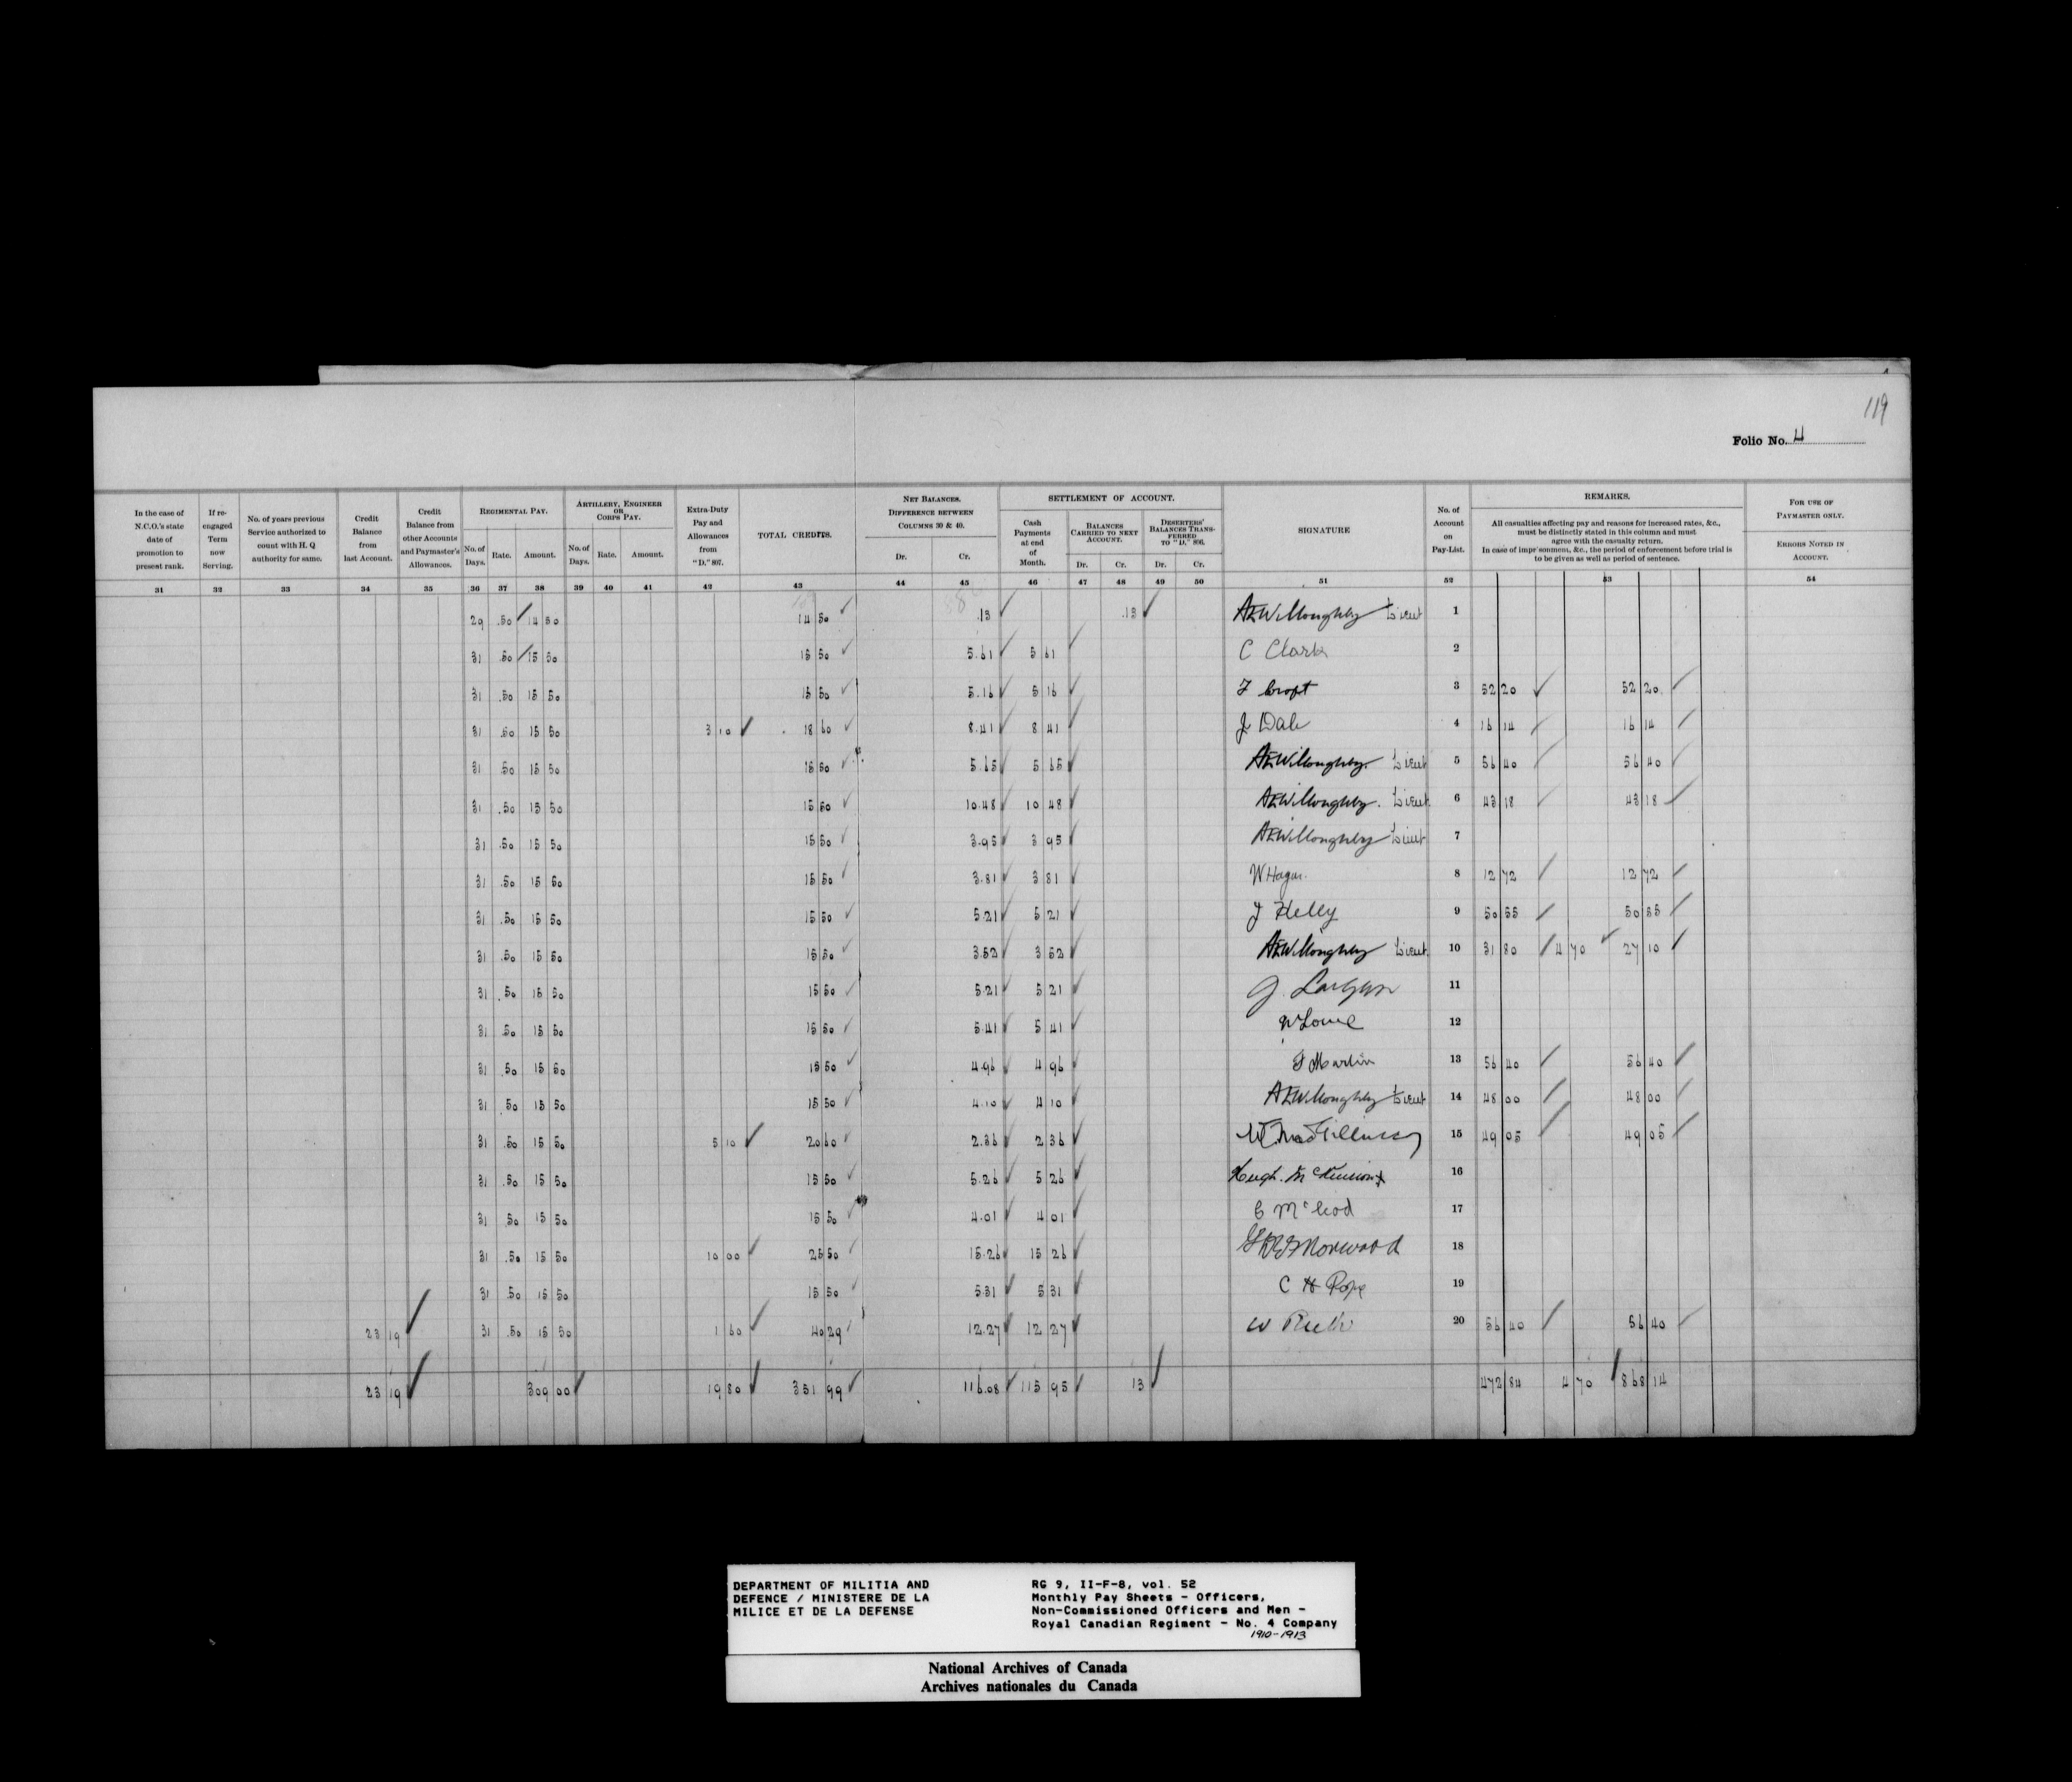 119
Folio No. 4
In the case of N.C.O.'s state date of promotion to present rank.
If re-engaged Term now Serving.
No. of years previous Service authorized to count with H. Q authority for same.
Credit Balance from last Account.
Credit Balance from other Accounts and Paymaster's Allowances.
REGIMENTAL PAY.
No. of Days. Rate. Amount.
ARTILLERY, ENGINEER OR CORPS PAY.
No. of Days. Rate. Amount.
Extra-Duty Pay and Allowances from "D." 807.
TOTAL CREDITS.
NET BALANCES. DIFFERENCE BETWEEN COLUMNS 30 & 40.
Dr. Cr.
SETTLEMENT OF ACCOUNT.
Cash Payments at end of Month.
BALANCES CARRIED TO NEXT ACCOUNT.
Dr. Cr.
DESERTERS' BALANCES TRANSFERRED TO "D." 806.
Dr. Cr.
SIGNATURE
No. of Account on Pay-List.
REMARKS.
All casualties affecting pay and reasons for increased rates, &c., must be distinctly stated in this column and must agree with the casualty return.
In case of imprisonment, &c., the period of enforcement before trial is to be given as well as period of sentence.
FOR USE OF PAYMASTER ONLY.
ERRORS NOTED IN ACCOUNT.
31 32 33 34 35 36 37 38 39 40 41 42 43 44 45 46 47 48 49 50 51 52 53 54
29 .50 14 50 14 50 .13 .13 AEWilloughby Lieut 1
31 .50 15 50 15 50 5.61 5 61 C Clark 2
31 .50 15 50 15 50 5.16 5 16 F Croft 3 52 20 52 20
31 .50 15 50 3 10 18 60 8.41 8 41 J Dale 4 16 14 16 14
31 .50 15 50 15 50 5.65 5 65 AEWilloughby Lieut 5 56 40 56 40
31 .50 15 50 15 50 10.48 10 48 AEWilloughby. Lieut. 6 43 18 43 18
31 .50 15 50 15 50 3.95 3 95 AEWilloughby Lieut 7
31 .50 15 50 15 50 3.81 3 81 W Hagan. 8 12 72 12 72
31 .50 15 50 15 50 5.21 5 21 J Kelly 9 50 55 50 55
31 .50 15 50 15 50 3.52 3 52 AEWilloughby Lieut. 10 31 80 4 70 27 10
31 .50 15 50 15 50 5.21 5 21 J. 11
31 .50 15 50 15 50 5.41 5 41 W Lowe 12
31 .50 15 50 15 50 4.96 4 96 F Martin 13 56 40 56 40
31 .50 15 50 15 50 4.10 4 10 AEWilloughby Lieut 14 48 00 48 00
31 .50 15 50 5 10 20 60 2.36 2 36 15 49 05 49 05
31 .50 15 50 15 50 5.26 5 26 Hugh. McKinnon 16
31 .50 15 50 15 50 4.01 4 01 C McLeod 17
31 .50 15 50 10 00 25 50 15.26 15 26 Morwood 18
31 .50 15 50 15 50 5.31 5 31 C H Pope 19
23 19 31 .50 15 50 1 60 40 29 12.27 12 27 W 20 56 40 56 40
23 19 309 00 19 80 351 99 116.08 115 95 13 472 84 4 70 868 14
DEPARTMENT OF MILITIA AND
DEFENCE / MINISTERE DE LA
MILICE ET DE LA DEFENSE
RG 9, II-F-8, vol. 52
Monthly Pay Sheets - Officers,
Non-Commissioned Officers and Men -
Royal Canadian Regiment - No. 4 Company
1910-1913
National Archives of Canada
Archives nationales du Canada